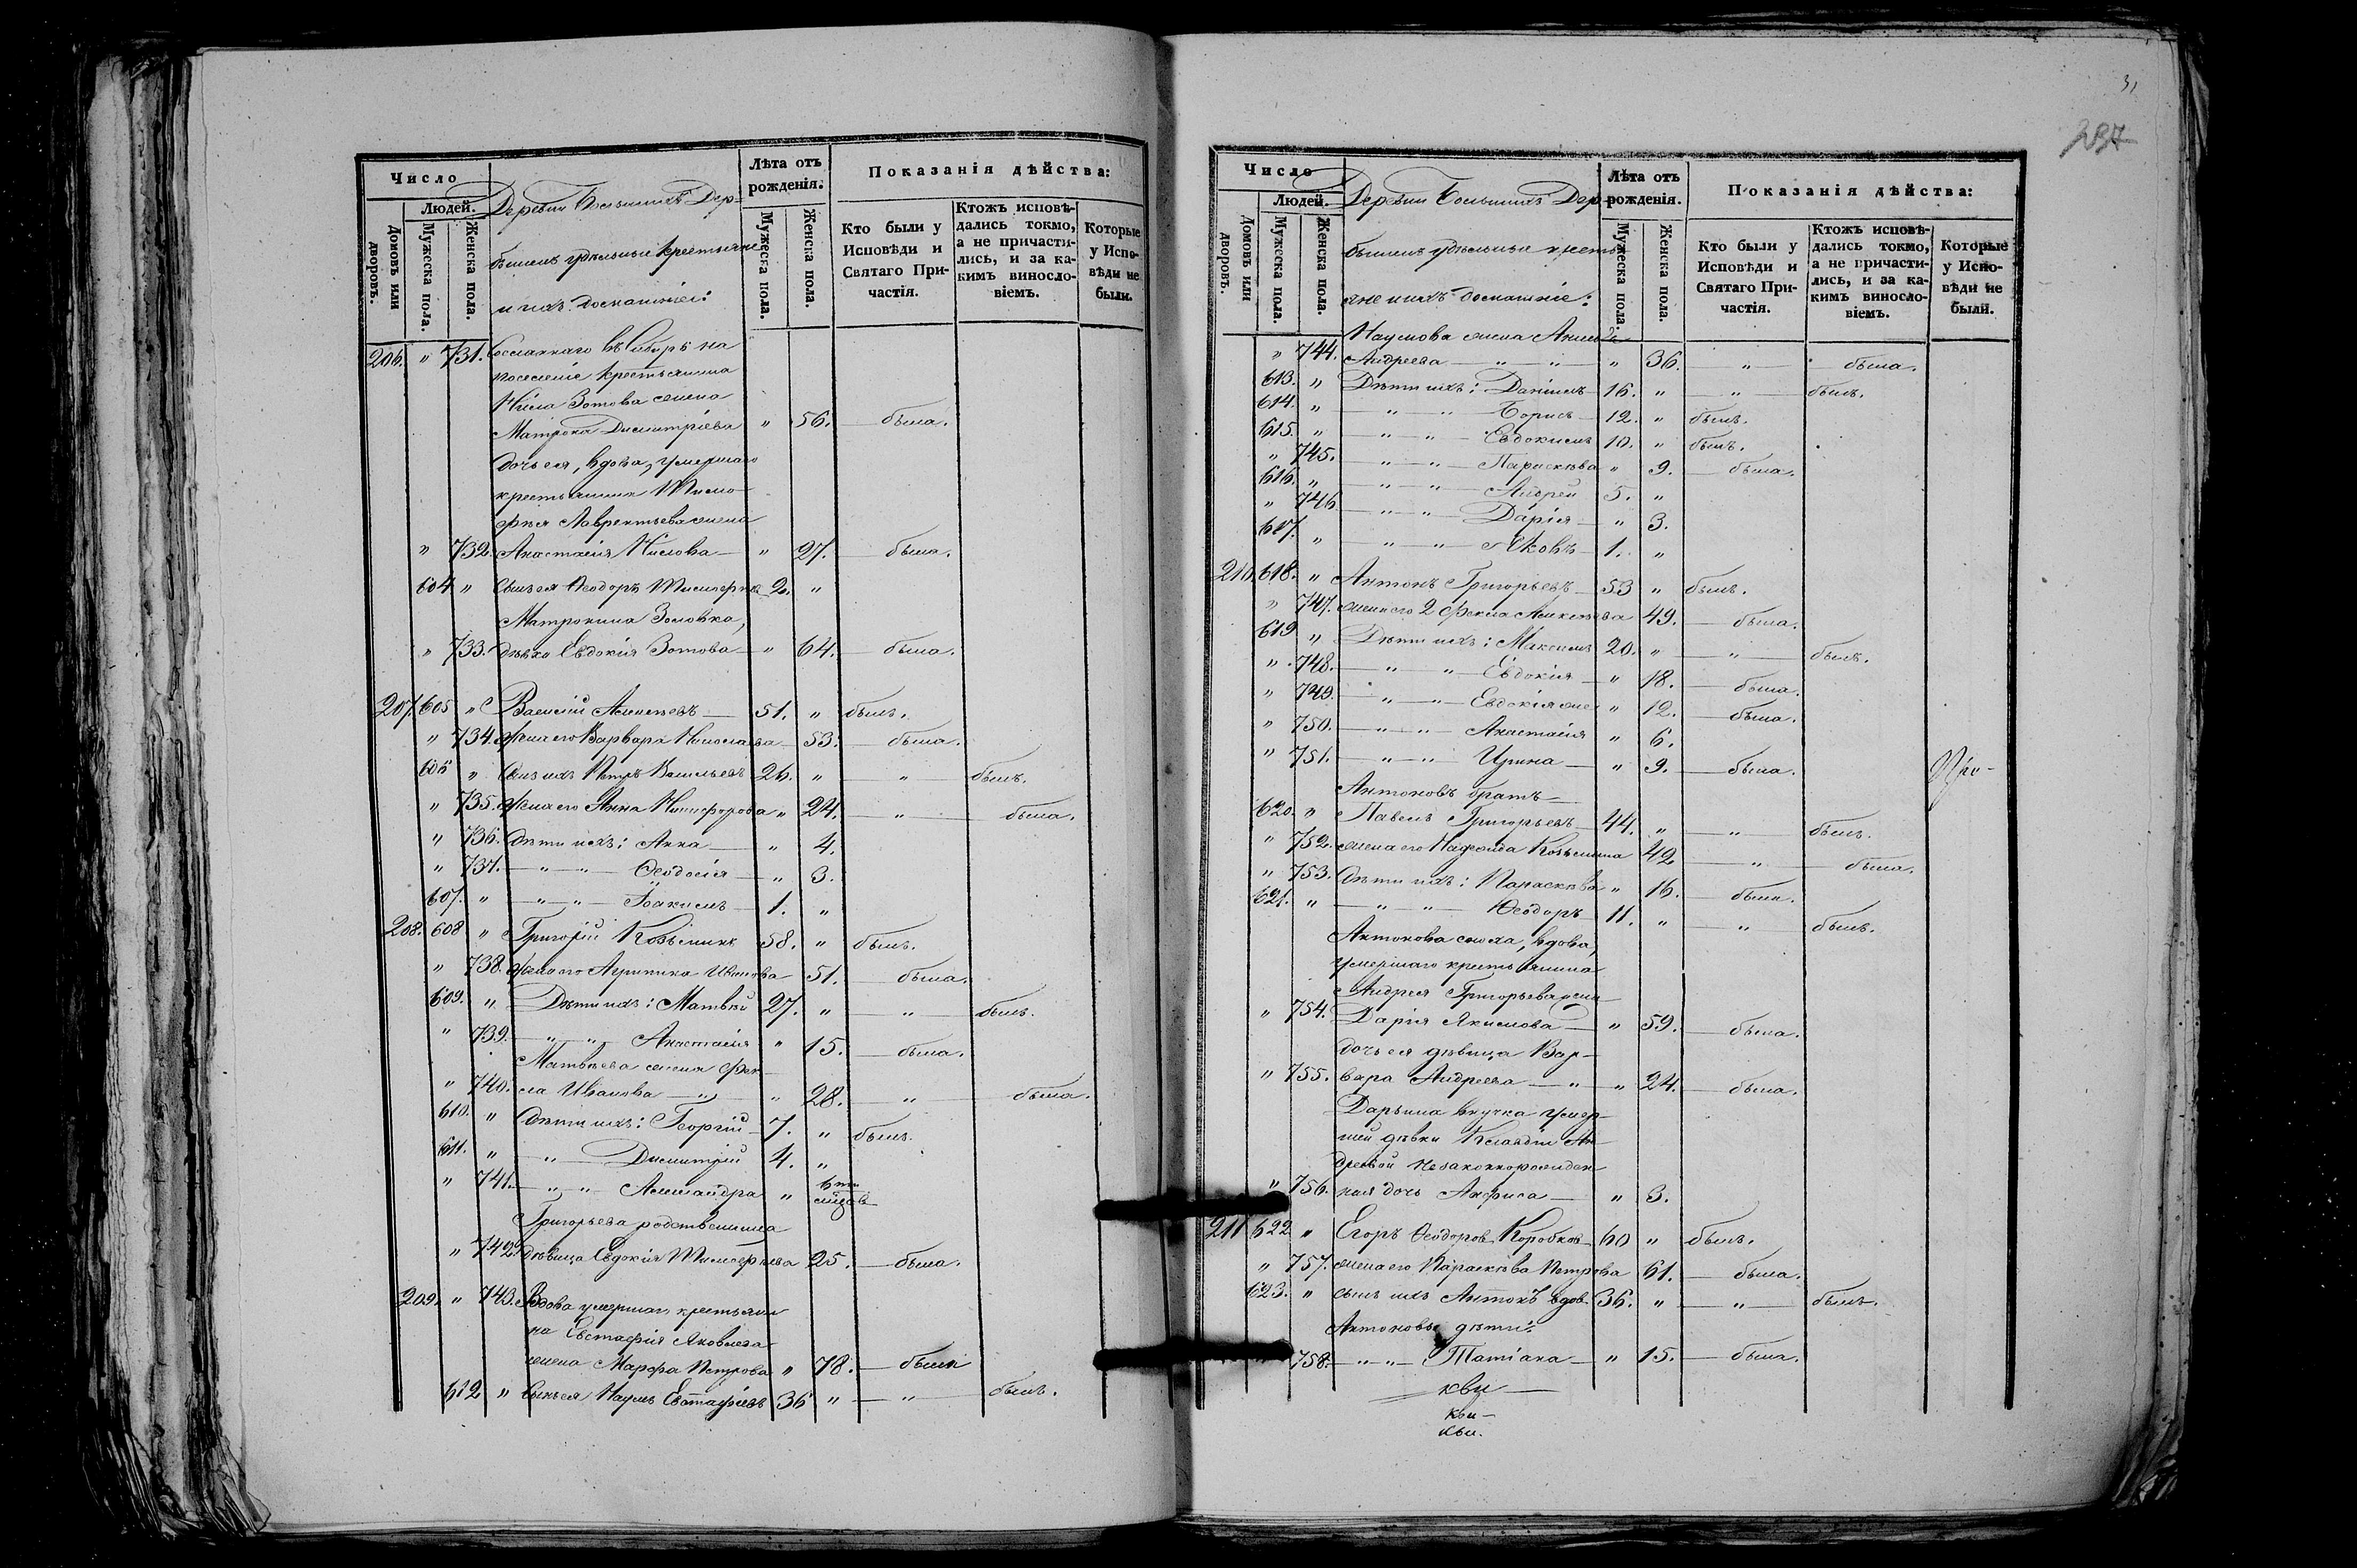 Число
Людей.
Домовъ или дворовъ.
Мужеска пола.
Женска пола.
Деревни Большихъ Дер-
бышевъ удѣльные крестьяне
и ихъ домашніе:
Лѣта отъ рожденія.
Мужеска пола.
Женска пола.
Показанія дѣйства:
Кто были у Исповѣди и Святаго Причастія.
Ктожъ исповѣдались токмо, а не причастились, и за какимъ винословіемъ.
Которые у Исповѣди не были.
206. " 731. Сосланнаго въ Сибирь на
поселеніе крестьянина
Зотова жена
Матрона Димитріева " 56. была.
дочь ея, вдова, умершаго
крестьянина Тимо-
фея Лаврентьева жена
" 732. Анастасія " 27. была.
604 " Сынъ ея Ѳеодоръ 2. "
Матронина Золовка,
" 733. дѣвка Евдокія Зотова " 64. была.
207. 605 " Василій Алексѣевъ 51. " былъ.
" 734. Жена его Варвара 53. была.
606 " Сынъ ихъ Петръ Васильевъ 26. " " былъ.
" 735. Жена его Анна Никифорова " 24. " была.
" 736. Дѣти ихъ: Анна " 4.
" 737. " " Ѳеодосія " 3.
607. " " " Іоакимъ 1. "
208. 608 " Григорій Козьминъ 58. " былъ.
" 738. Жена его Агрипина Иванова 51. была.
609. " Дѣти ихъ: Матвѣй 27. " " былъ.
" 739. " " Анастасія " 15. была.
Матвѣева жена Фек-
" 740. ла Иванова " " 28. " была.
610. " Дѣти ихъ: Георгій 7. " былъ.
611. " " Димитрій 4. "
" 741. " " Александра "
Григорьева родственница
" 742. дѣвица Евдокія Тимофѣева 25. была.
209. " 743. Вдова умершаго крестьяни
на Евстафія Яковлева
жена Марфа Петрова " 78. была
612 " Сынъ ея Наумъ Евстафіевъ 36 " " былъ.
31
237
Число
Людей.
Домовъ или дворовъ.
Мужеска пола.
Женска пола.
Деревни Большихъ Дер-
бышевъ удѣльные кресть
яне и ихъ домашніе:
Лѣта отъ рожденія.
Мужеска пола.
Женска пола.
Показанія дѣйства:
Кто были у Исповѣди и Святаго Причастія.
Ктожъ исповѣдались токмо, а не причастились, и за какимъ винословіемъ.
Которые у Исповѣди не были.
Наумова жена
" 744. Андреева " " " 36. " была.
613. " Дѣти ихъ: Даніилъ 16. " " былъ.
614. " " " Борисъ 12. " былъ.
615. " " " Евдокимъ 10. " былъ.
" 745. " " Параскѣва " 9. была.
616. " " " Андрей 5. "
" 746 " " Дарія " 3.
617. " " " Яковъ 1. "
210. 618. " Антонъ Григорьевъ 53 " былъ.
" 747. жена его 2 Фекла Алексѣева 49. была.
619 " Дѣти ихъ: Максимъ 20. " " былъ.
" 748. " " Евдокія " 18. была.
" 749. " " Евдокія " 12. была.
" 750. " " Анастасія " 6.
" 751. " " Ирина " 9. была.
Антоновъ братъ
620. " Павелъ Григорьевъ 44. " " былъ.
" 752. жена его Надежда Козьмина 42 " была.
" 753. Дѣти ихъ: Параскѣва " 16. была.
621. " " " Ѳеодоръ 11. " " былъ.
Антонова сноха, вдова,
умершаго крестьянина
Андрея Григорьева жена
" 754. Дарія Якимова " 59. была.
дочь ея дѣвица Вар-
" 755. вара Андреева " " 24. была.
Дарьина внучка умер-
шей дѣвки Клавдіи Ан-
дреевой незаконнорожден
" 756. ная дочь Анфиса " 3.
211 622 " Егоръ Ѳеодоровъ Коробковъ 60 " былъ.
" 757. жена его Параскѣва Петрова 61. была.
623. " сынъ ихъ Антонъ вдов. 36. " " былъ.
Антоновы дѣти:
758. " " Татіана " 15. была.